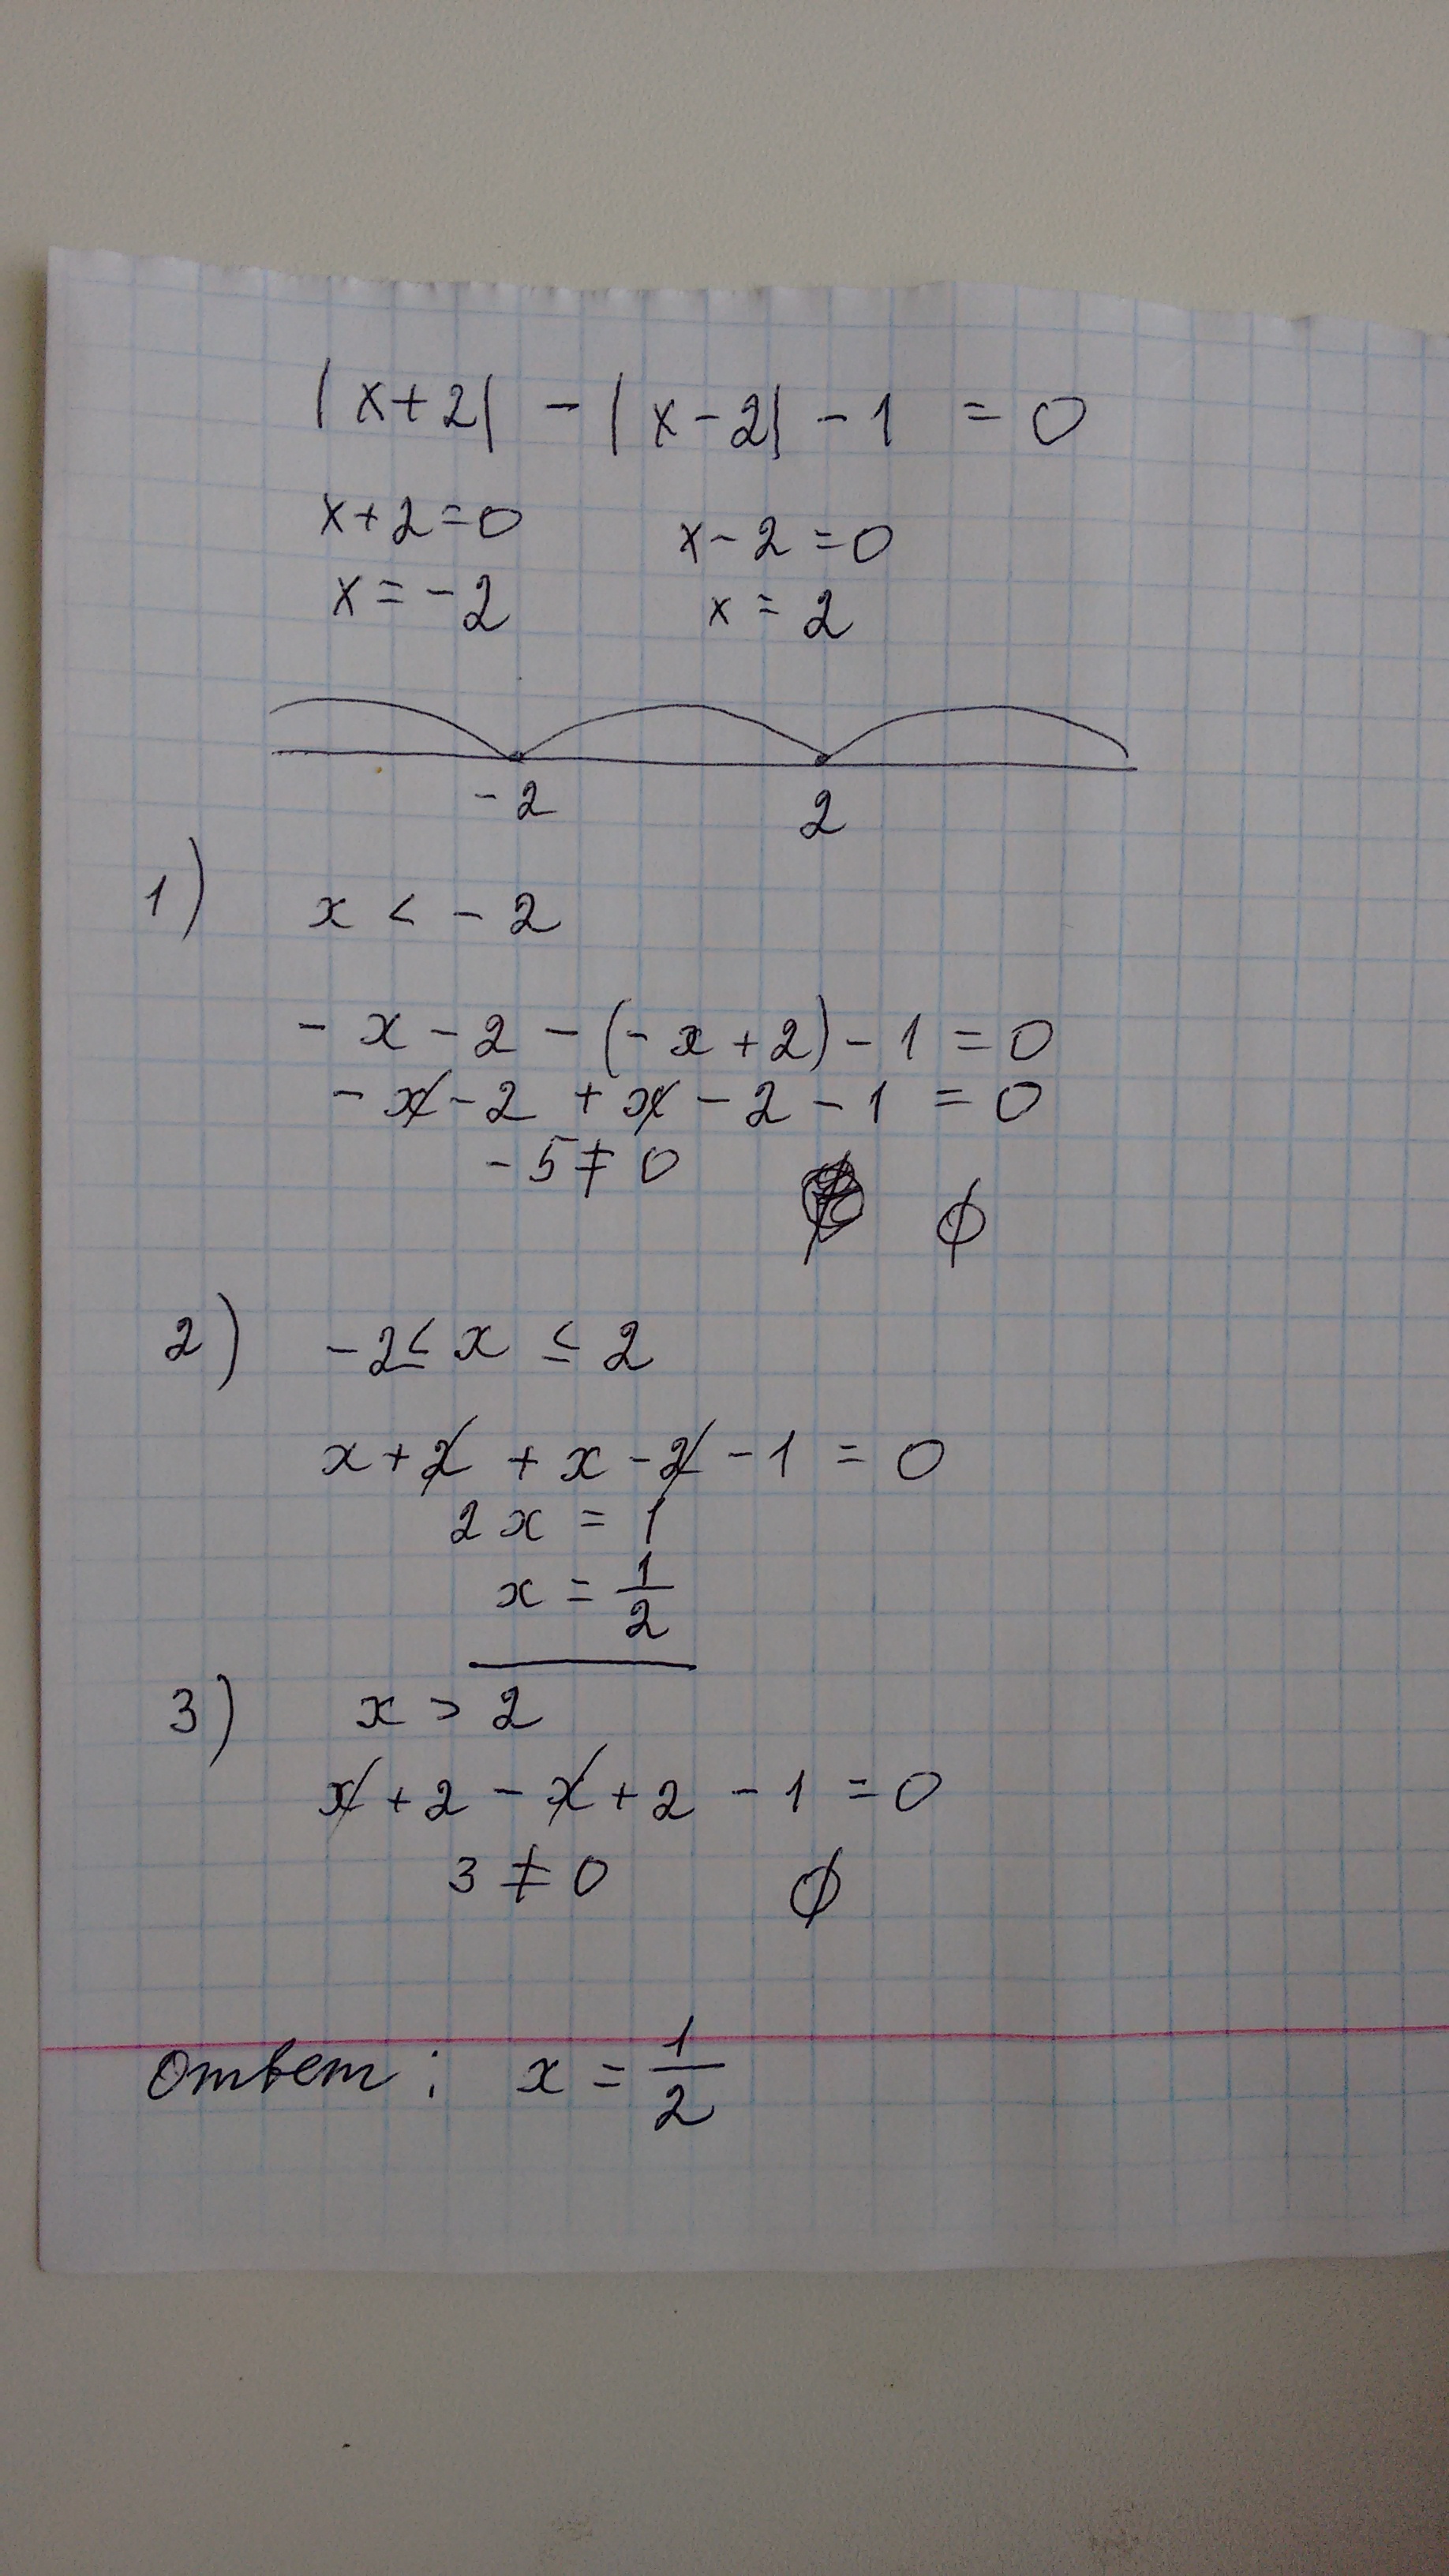 |x+2| - |x-2| - 1 = 0
x+2=0 x-2=0
x=-2 x=2
-2 2
1) x < -2
-x-2-(-x+2)-1=0
-x-2+x-2-1=0
-5≠0 ∅
2) -2≤x≤2
x+2+x-2-1=0
2x=1
x=1/2
3) x>2
x+2-x+2-1=0
3≠0 ∅
Ответ: x=1/2